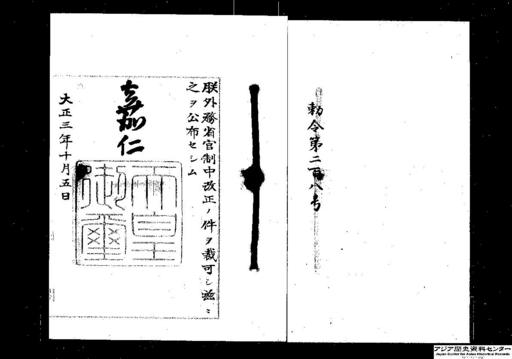 勅令第二百八号
朕外務省官制中改正ノ件ヲ裁可シ玆ニ
之ヲ公布セシム
嘉仁
天皇
御璽
大正三年十月五日
アジア歴史資料センター
Japan Center for Asian Historical Records